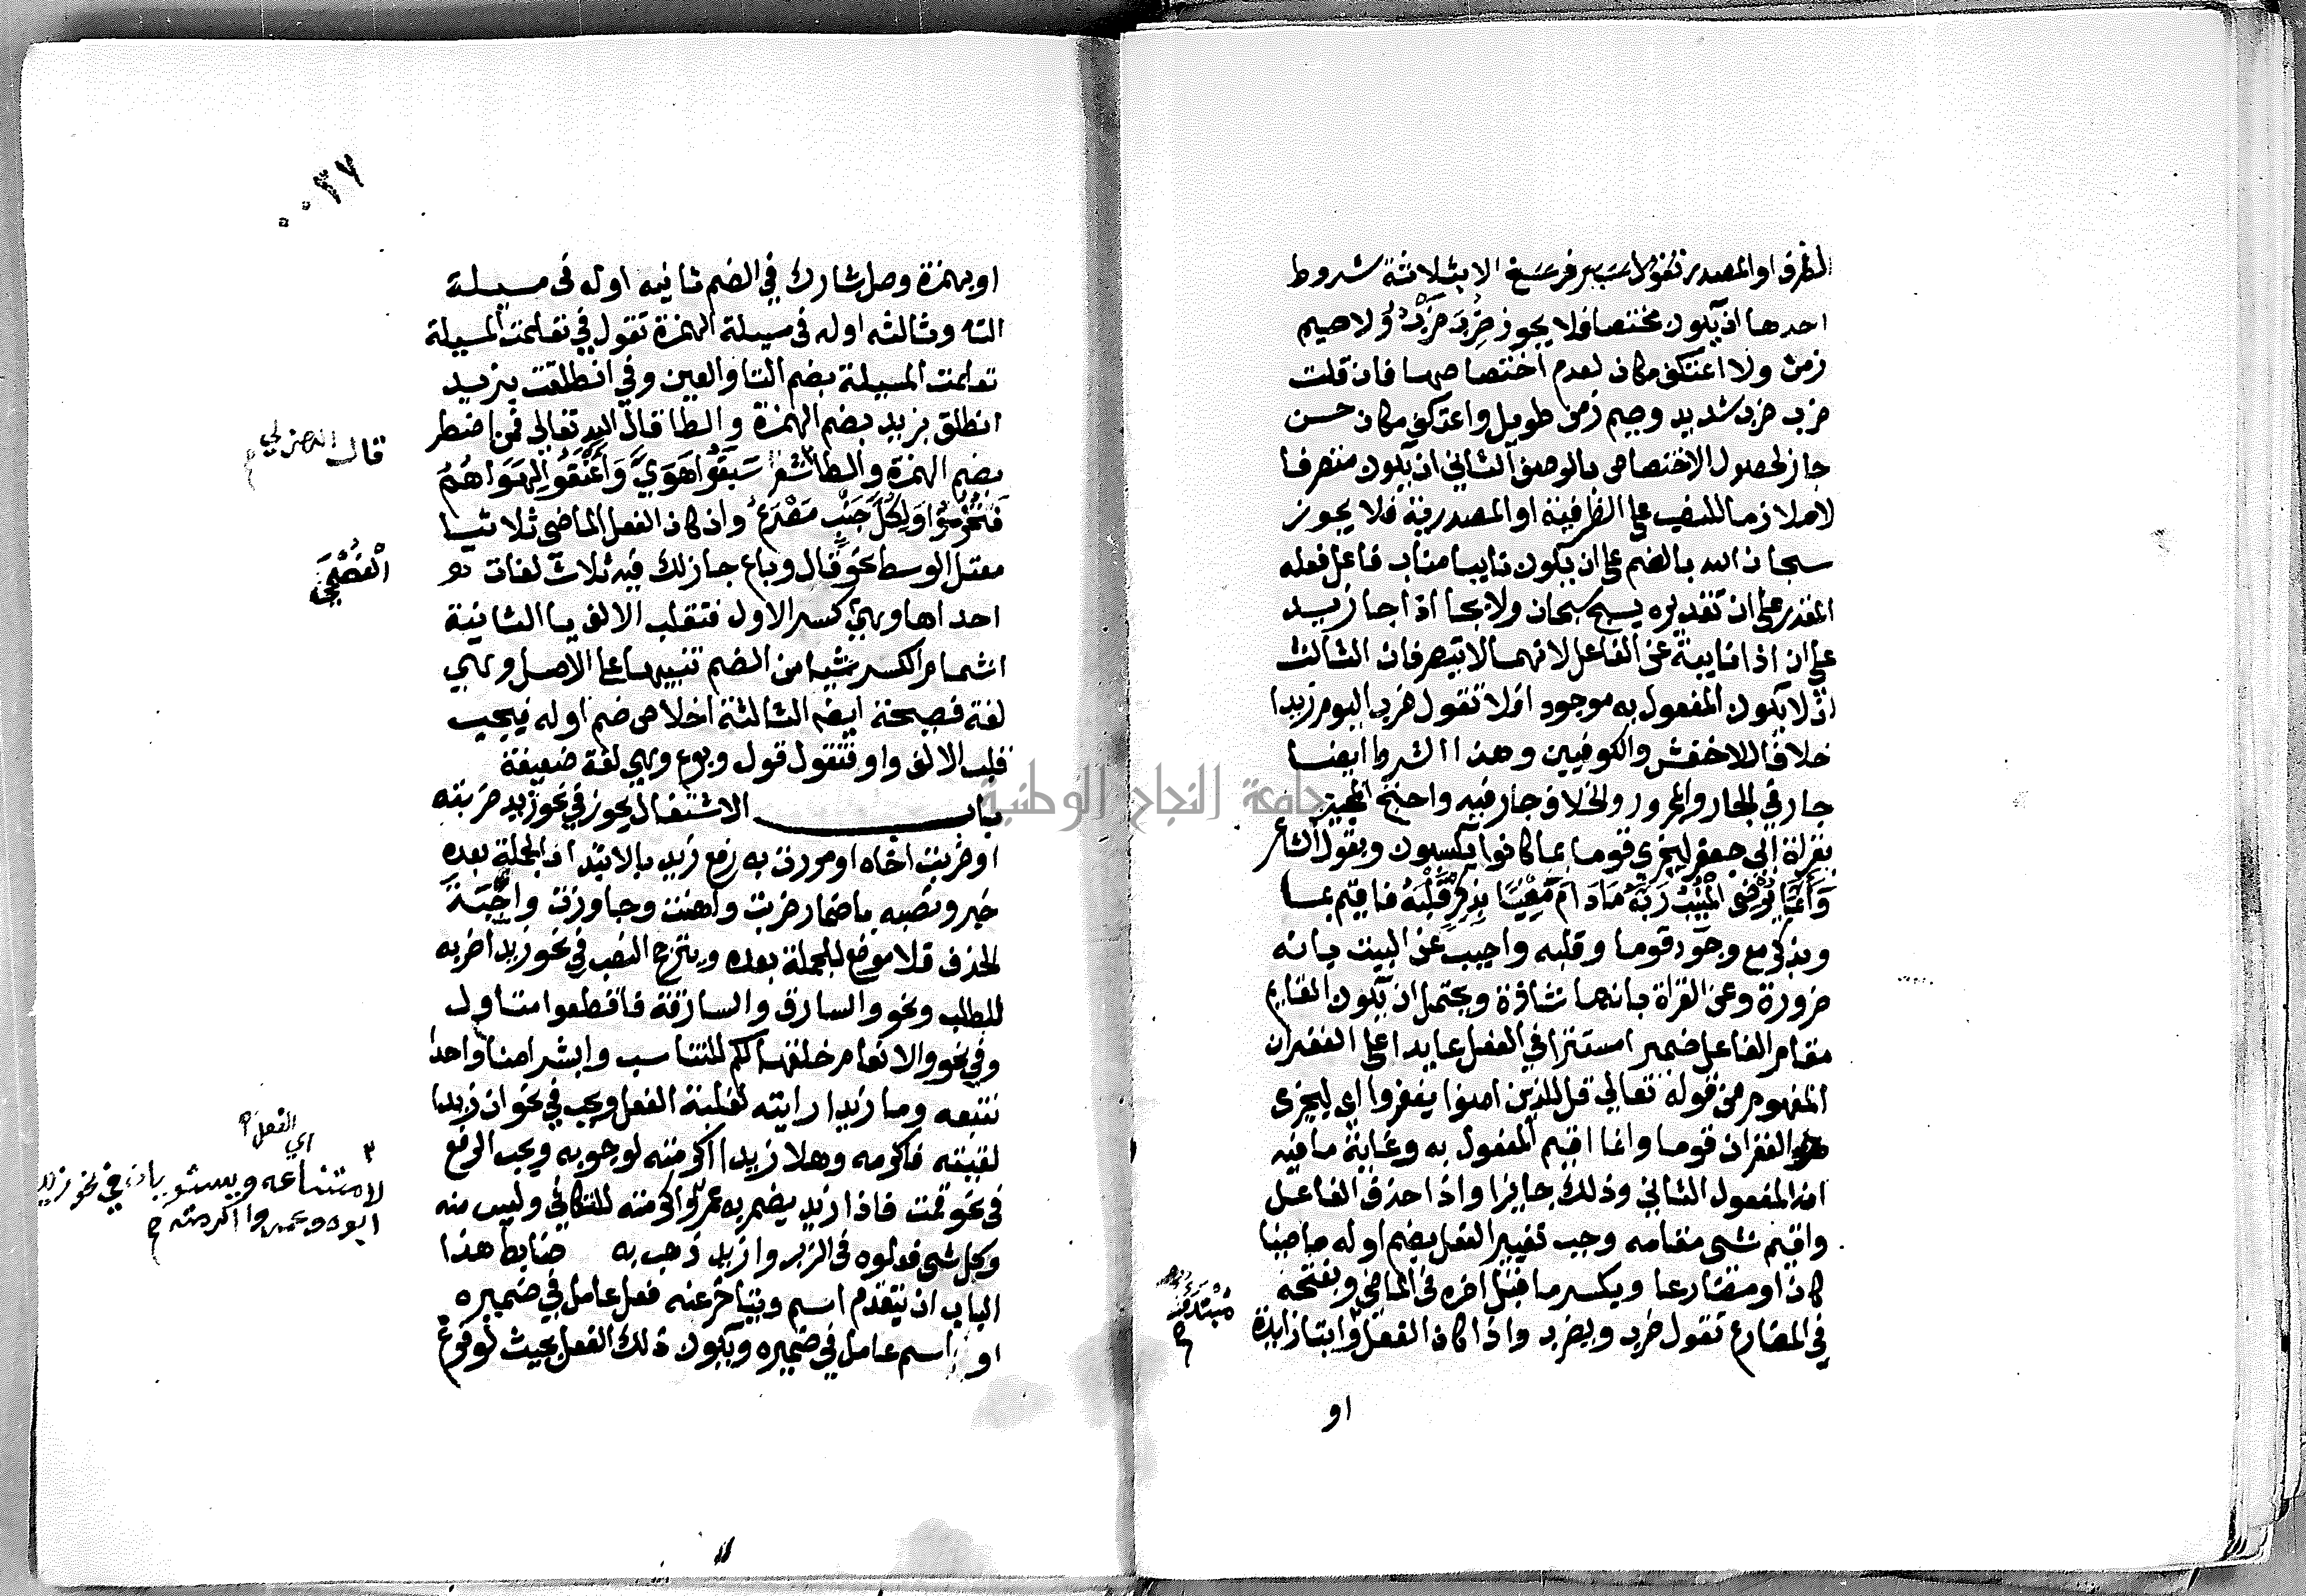 الظرف او المصدر تقول سير فرسخ الا بثلاثة شروط
احدها ان يكون مختصا فلا يجوز ضُرِبَ ضَرْبٌ ولا صيم
زمن ولا اعتكف مكان لعدم اختصاصها فان قلت
ضرب ضرب شديد وصيم زمن طويل واعتكف مكان حسن
جاز لحصول الاختصاص بالوصف الثاني ان يكون متصرفا
لا ملازما للنصب على الظرفية او المصدرية فلا يجوز
سبحان الله بالضم على ان يكون نايبا مناب فاعل فعله
المقدر على ان تقديره يسبح سبحان ولا يجا اذا جا زيد
على ان اذا نايبة عن الفاعل لانهما لا يتصرفان الثالث
ان لا يكون المفعول به موجود افلا تقول ضرب اليوم زيدا
خلافا للاخفش والكوفيين وهذا الشرط ايضا
جار في الجار والمجرور والخلاف جار فيه واحتج المجيز
بقراة ابي جعفر ليجزى قوما بما كانوا يكسبون وبقول الشاعر
وَانَّمَا يُرْضِى الْمُنِيبُ رَبَّهُ مَادَامَ مَعْنِيًّا بِذِكْرٍ قَلْبَهُ فاقيم بما
وبذكر مع وجود قوما وقلبه واجيب عن البيت بانه
ضرورة وعن القراة بانها شاذة ويحتمل ان يكون القايم
مقام الفاعل ضميرا مستترا في الفعل عايدا على الغفران
المفهوم من قوله تعالى قل للذين امنوا يغفروا اى ليجزى
الغفران قوما وانما اقيم المفعول به وغاية ما فيه
انه المفعول الثاني وذلك جايزا واذا حذف الفاعل
واقيم شى مقامه وجب تغيير الفعل بضم اوله ماضيا
كان او مضارعا وبكسر ما قبل اخره في الماضي وبفتحه
في المضارع تقول ضرب ويضرب واذا كان الفعل بتا زايدة
او
٢٧
او بهمزة وصل شارك في الضم ثانيه اوله في مسيلة
التا وثالثه اوله في مسيلة الهمزة تقول في تعلمت المسيلة
تعلمت المسيلة بضم التا والعين وفي انطلقت بزيد
انطلق بزيد بضم الهمزة والطا قال الله تعالى فمن اضطر
بضم الهمزة والطا شعر سَبَقُوا هَوَيَّ وَاَعْنَقُوا لِهَوَاهُمُ
فَتُخُرِّمُوا وَلِكُلِّ جَنْبٍ مَصْرَعُ واذ كان الفعل الماضي ثلاثيا
معتل الوسط نحو قال وباع جاز لك فيه ثلاث لغات
احداها وهي كسر الاول فتقلب الالف يا الثانية
اشمام الكسر شيا من الضم تنبيها على الاصل وهي
لغة فصيحة ايضا الثالثة اخلاص ضم اوله فيجب
قلب الالف واو فتقول قول وبوع وهي لغة ضعيفة
باب الاشتغال يجوز في نحو زيد ضربته
او ضربت اخاه او مررت به رفع زيد بالابتدا فالجملة بعده
خبر ونصبه باضمار ضربت واهنت وجاوزت واجبة
الحذف فلا موضع للجملة بعده ويترجح النصب في نحو زيدا ضربه
للطلب ونحو والسارق والسارقة فاقطعوا متاول
وفي نحو والانعام خلقها لكم للتناسب وابشرا منا واحدا
نتبعه وما زيدا رايته لغلبة الفعل ويجب في نحو ان زيدا
لقيته فاكرمه وهلا زيدا اكرمته لوجوبه ويجب الرفع
في نحو قمت فاذا زيد يضربه عمرو اكرمته للتكافي وليس منه
وكل شى فعلوه في الزبر وازيد ذهب به ضابط هذا
الباب ان يتقدم اسم ويتاخر عنه فعل عامل في ضميره
او اسم عامل في ضميره ويكون ذلك الفعل بحيث لو فرغ
قال الهذلي
الفُصْحَى
اي الفعل
لامتناعه ويستويان في نحو زيد
ابوه وعمروا اكرمته
جامعة النجاح الوطنية